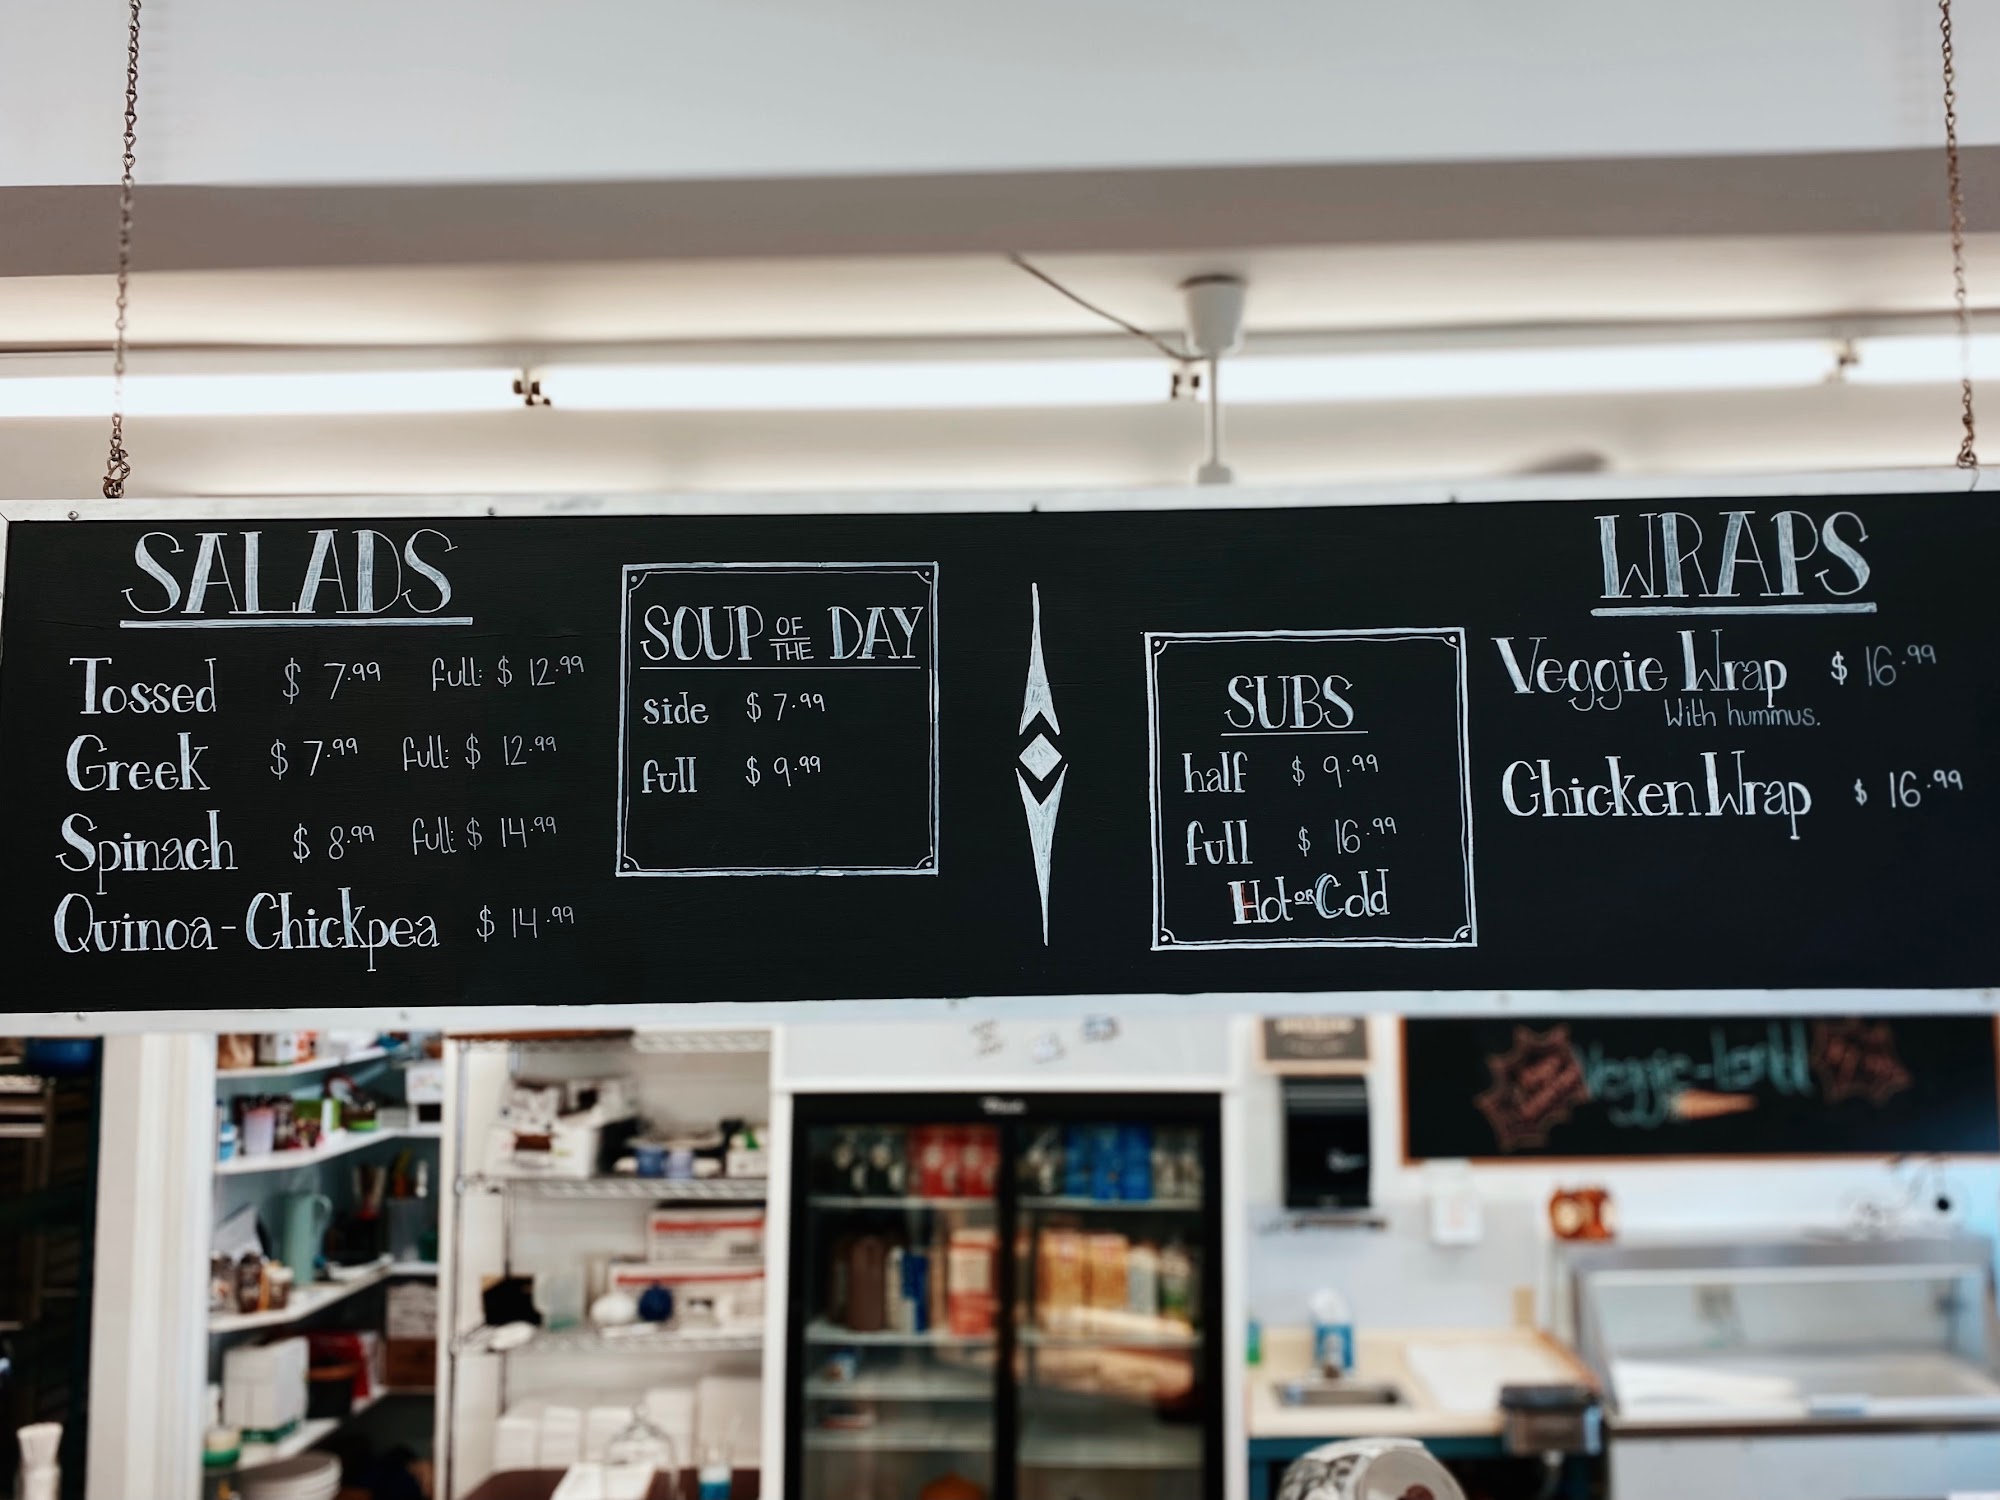 SALADS
Tossed $ 7.99 full: $ 12.99
Greek $ 7.99 full: $ 12.99
Spinach $ 8.99 full: $ 14.99
Quinoa-Chickpea $ 14.99
SOUP OF THE DAY
side $ 7.99
full $ 9.99
SUBS
half $ 9.99
full $ 16.99
Hot OR Cold
WRAPS
Veggie Wrap $ 16.99
With hummus.
Chicken Wrap $ 16.99